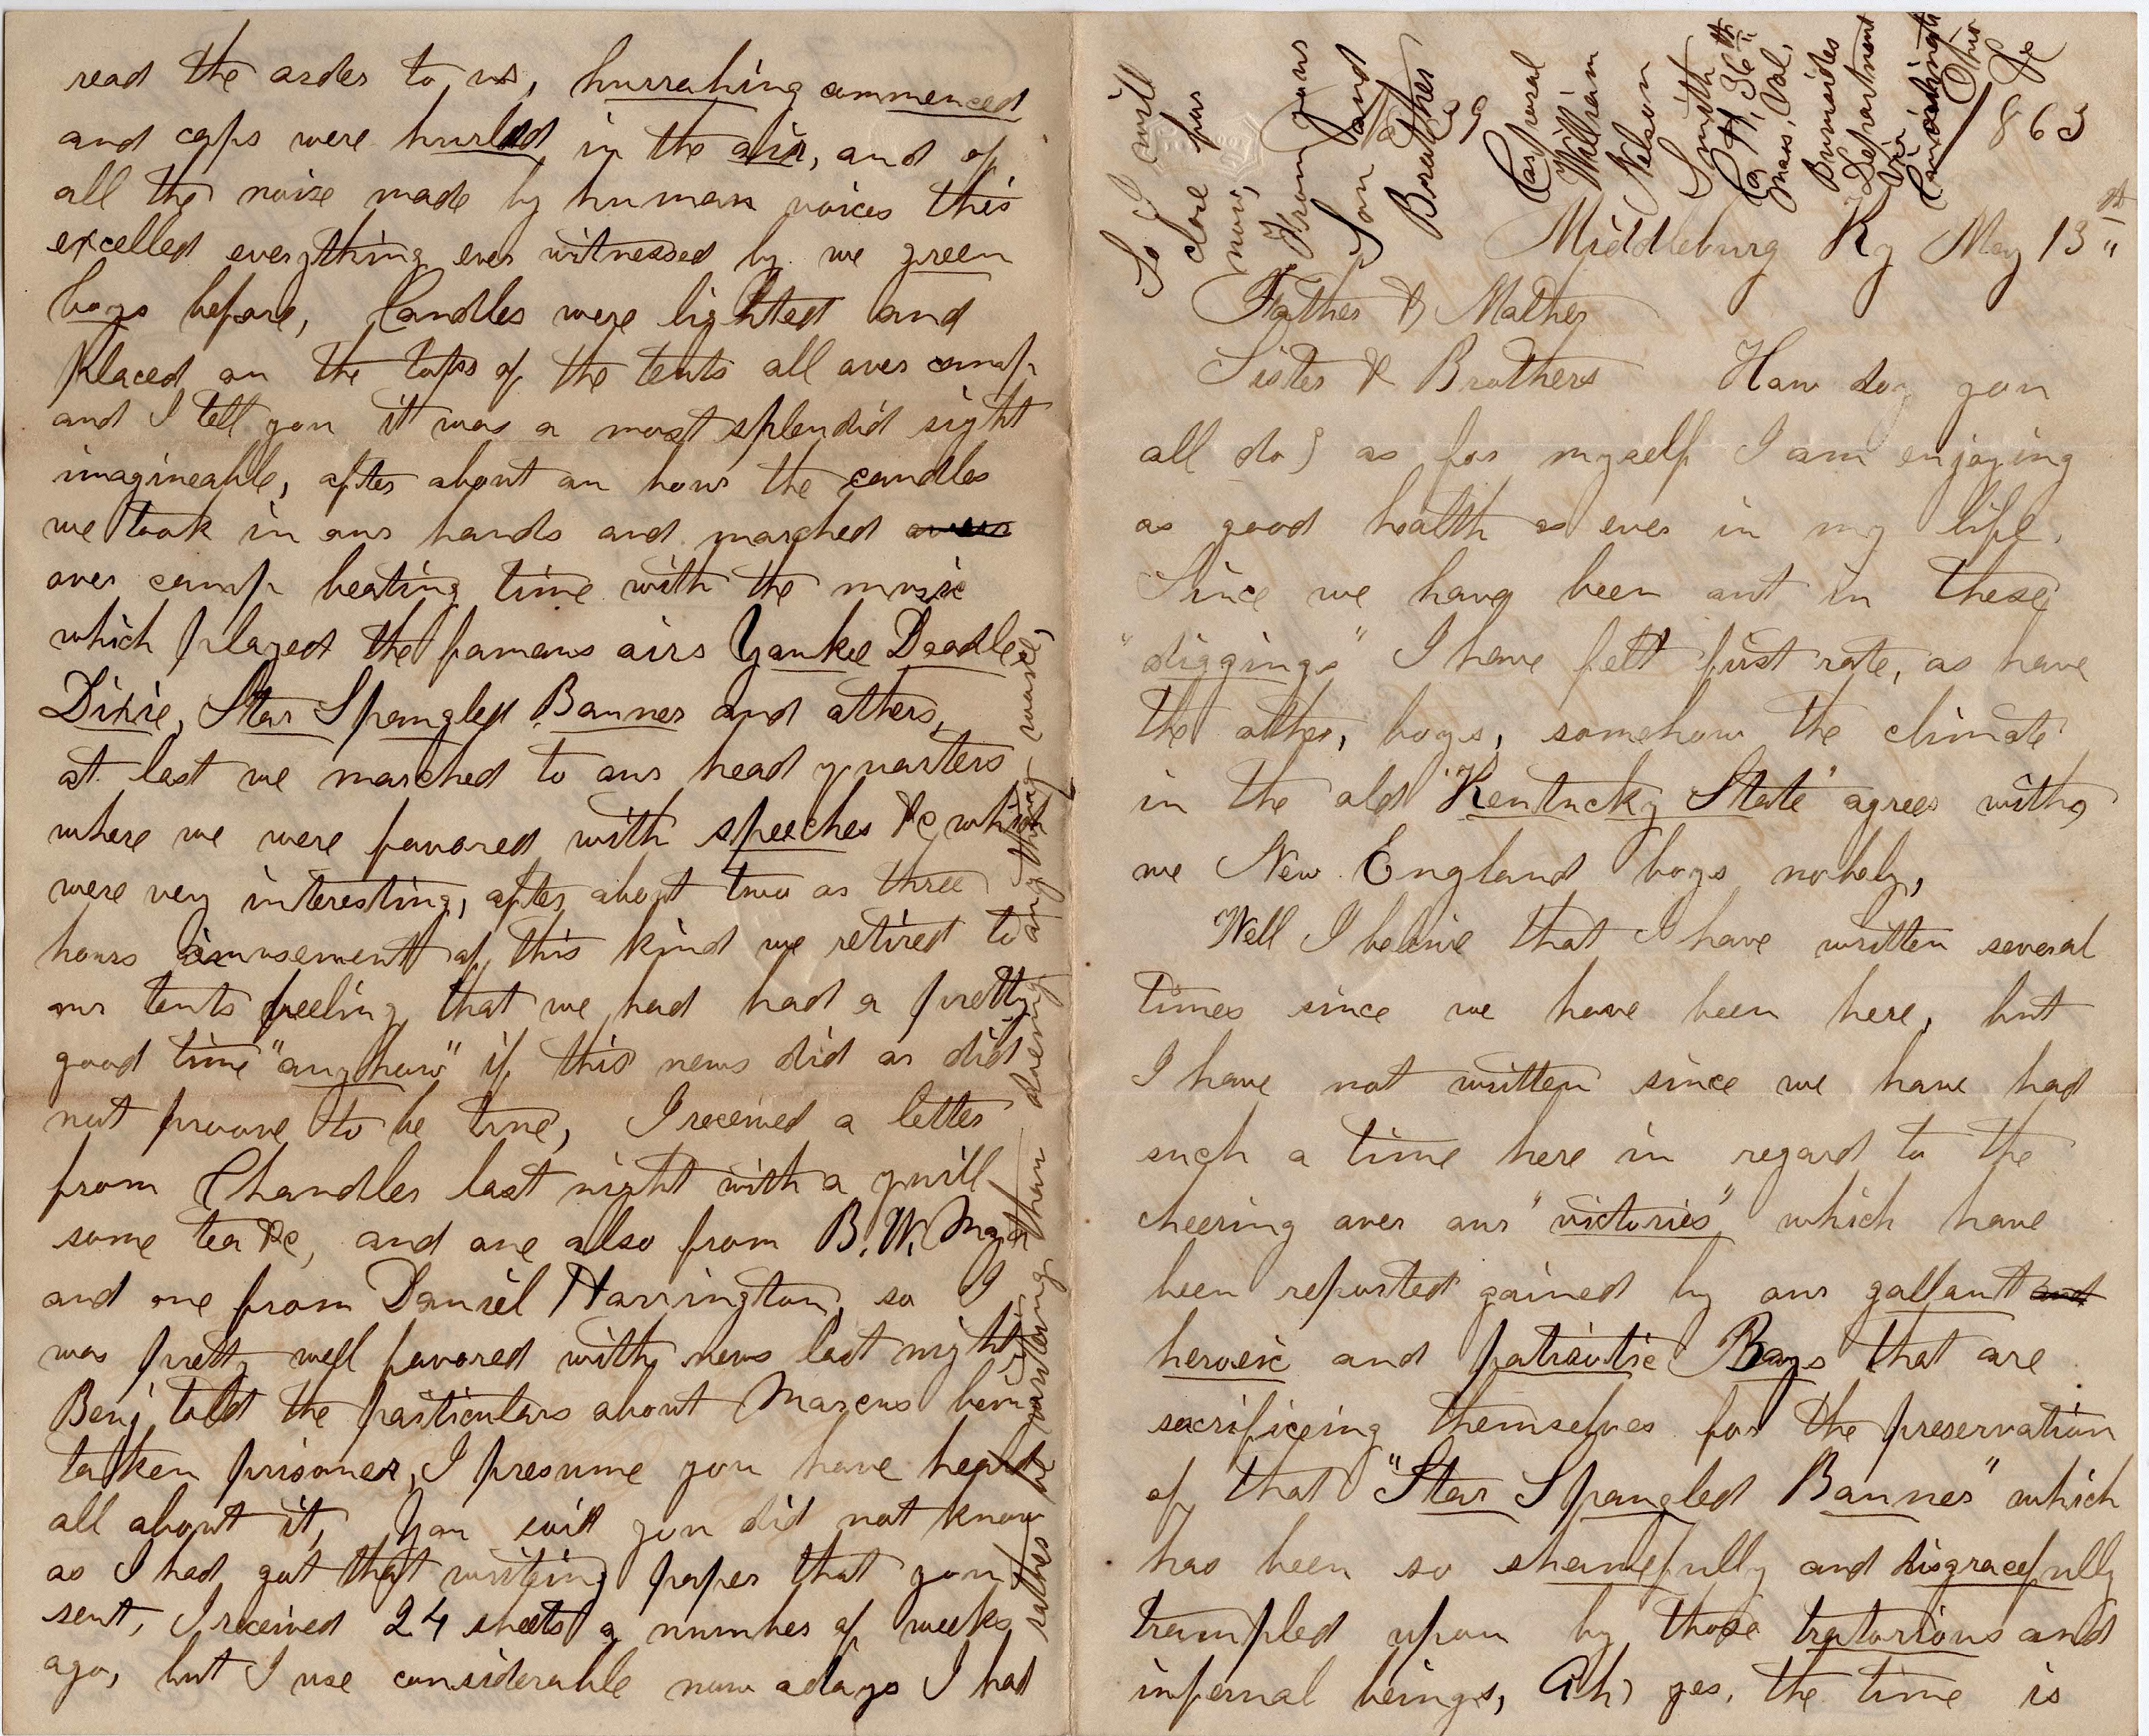 read the order to us, hurrahing commenced
and caps were hurled in the air, and of
all the noize made by human voices this
excelled everything ever witnessed by we green
boys before, Candles were lighted and
placed on the tops of the tents all over camp
and I tell you it was a most splendid sight
imagineable, after about an hour the candles
we took in our hands and marched
over camp beating time with the music
which played the famous airs Yankee Doodle,
Dixie, Star Spangled Banner and others,
at last we marched to our head quarters
where we were favored with speeches &c which
were very interesting, after about two or three
hours amusement of this kind we retired to
our tents feeling that we had had a pretty
good time "anyhow" if this news did or did
not proove to be true, I received a letter
from Chandler last night with a quill
some tea &c, and one also from B. W. May
and one from Daniel Harrington, so I
was pretty well favored with news last night,
Benj told the particulars about Marcus being
taken prisoner, I presume you have heard
all about it, You said you did not know
as I had got that writeing paper that you
sent, I received 24 sheets a number of weeks
ago, but I use considerable now adays I had
rather be writing than doing any thing else,
So I will
close for
now,
From Yours
Son and
Brother
Corporal
William
Nelson
Smith
Co H, 36th
Mass, Vol,
Burnsides
Department
Via
Cincinnati
Ohio
1863
Middleburg Ky May 13th
Father & Mother
Sister & Brothers How do you
all do? as for myself I am enjoying
as good health as ever in my life.
Since we have been out in these
"diggings" I have felt first rate, as have
the other, boys, somehow the climate
in the old "Kentucky State" agrees with
we New England boys nobely,
Well I beleive that I have written several
times since we have been here, but
I have not written since we have had
such a time here in regard to the
cheering over our "victories", which have
been reported gained by our gallant and
heroeic and patriotic Boys that are
sacrificeing themselves for the preservation
of that "Star Spangled Banner" which
has been so shamefully and disgracefully
trampled upon by those tratorious and
infernal beings, Ah) yes, the time is